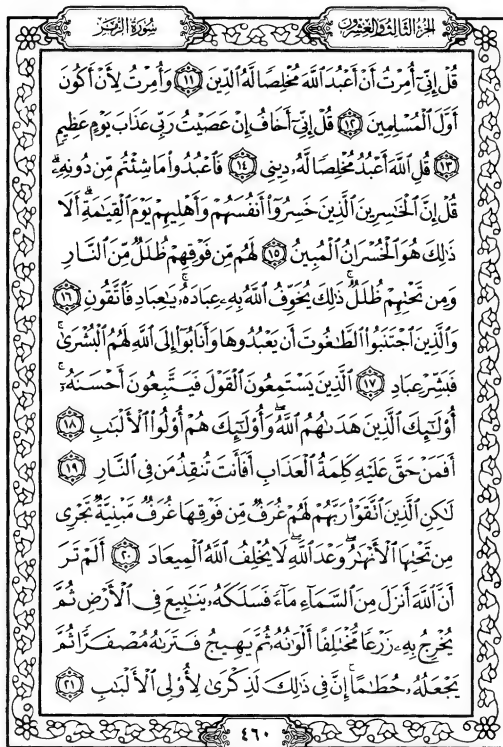 الجزء الثالث والعشرون
سورة الزمر
قُلْ إِنِّىٓ أُمِرْتُ أَنْ أَعْبُدَ ٱللَّهَ مُخْلِصًا لَّهُ ٱلدِّينَ ١١ وَأُمِرْتُ لِأَنْ أَكُونَ
أَوَّلَ ٱلْمُسْلِمِينَ ١٢ قُلْ إِنِّىٓ أَخَافُ إِنْ عَصَيْتُ رَبِّى عَذَابَ يَوْمٍ عَظِيمٍ
١٣ قُلِ ٱللَّهَ أَعْبُدُ مُخْلِصًا لَّهُۥ دِينِى ١٤ فَٱعْبُدُوا۟ مَا شِئْتُم مِّن دُونِهِۦۗ
قُلْ إِنَّ ٱلْخَـٰسِرِينَ ٱلَّذِينَ خَسِرُوٓا۟ أَنفُسَهُمْ وَأَهْلِيهِمْ يَوْمَ ٱلْقِيَـٰمَةِۗ أَلَا
ذَٰلِكَ هُوَ ٱلْخُسْرَانُ ٱلْمُبِينُ ١٥ لَهُم مِّن فَوْقِهِمْ ظُلَلٌ مِّنَ ٱلنَّارِ
وَمِن تَحْتِهِمْ ظُلَلٌۚ ذَٰلِكَ يُخَوِّفُ ٱللَّهُ بِهِۦ عِبَادَهُۥۚ يَـٰعِبَادِ فَٱتَّقُونِ ١٦
وَٱلَّذِينَ ٱجْتَنَبُوا۟ ٱلطَّـٰغُوتَ أَن يَعْبُدُوهَا وَأَنَابُوٓا۟ إِلَى ٱللَّهِ لَهُمُ ٱلْبُشْرَىٰۚ
فَبَشِّرْ عِبَادِ ١٧ ٱلَّذِينَ يَسْتَمِعُونَ ٱلْقَوْلَ فَيَتَّبِعُونَ أَحْسَنَهُۥٓۚ
أُو۟لَـٰٓئِكَ ٱلَّذِينَ هَدَىٰهُمُ ٱللَّهُۖ وَأُو۟لَـٰٓئِكَ هُمْ أُو۟لُوا۟ ٱلْأَلْبَـٰبِ ١٨
أَفَمَنْ حَقَّ عَلَيْهِ كَلِمَةُ ٱلْعَذَابِ أَفَأَنتَ تُنقِذُ مَن فِى ٱلنَّارِ ١٩
لَـٰكِنِ ٱلَّذِينَ ٱتَّقَوْا۟ رَبَّهُمْ لَهُمْ غُرَفٌ مِّن فَوْقِهَا غُرَفٌ مَّبْنِيَّةٌ تَجْرِى
مِن تَحْتِهَا ٱلْأَنْهَـٰرُۖ وَعْدَ ٱللَّهِۖ لَا يُخْلِفُ ٱللَّهُ ٱلْمِيعَادَ ٢٠ أَلَمْ تَرَ
أَنَّ ٱللَّهَ أَنزَلَ مِنَ ٱلسَّمَآءِ مَآءً فَسَلَكَهُۥ يَنَـٰبِيعَ فِى ٱلْأَرْضِ ثُمَّ
يُخْرِجُ بِهِۦ زَرْعًا مُّخْتَلِفًا أَلْوَٰنُهُۥ ثُمَّ يَهِيجُ فَتَرَىٰهُ مُصْفَرًّا ثُمَّ
يَجْعَلُهُۥ حُطَـٰمًاۚ إِنَّ فِى ذَٰلِكَ لَذِكْرَىٰ لِأُو۟لِى ٱلْأَلْبَـٰبِ ٢١
٤٦٠